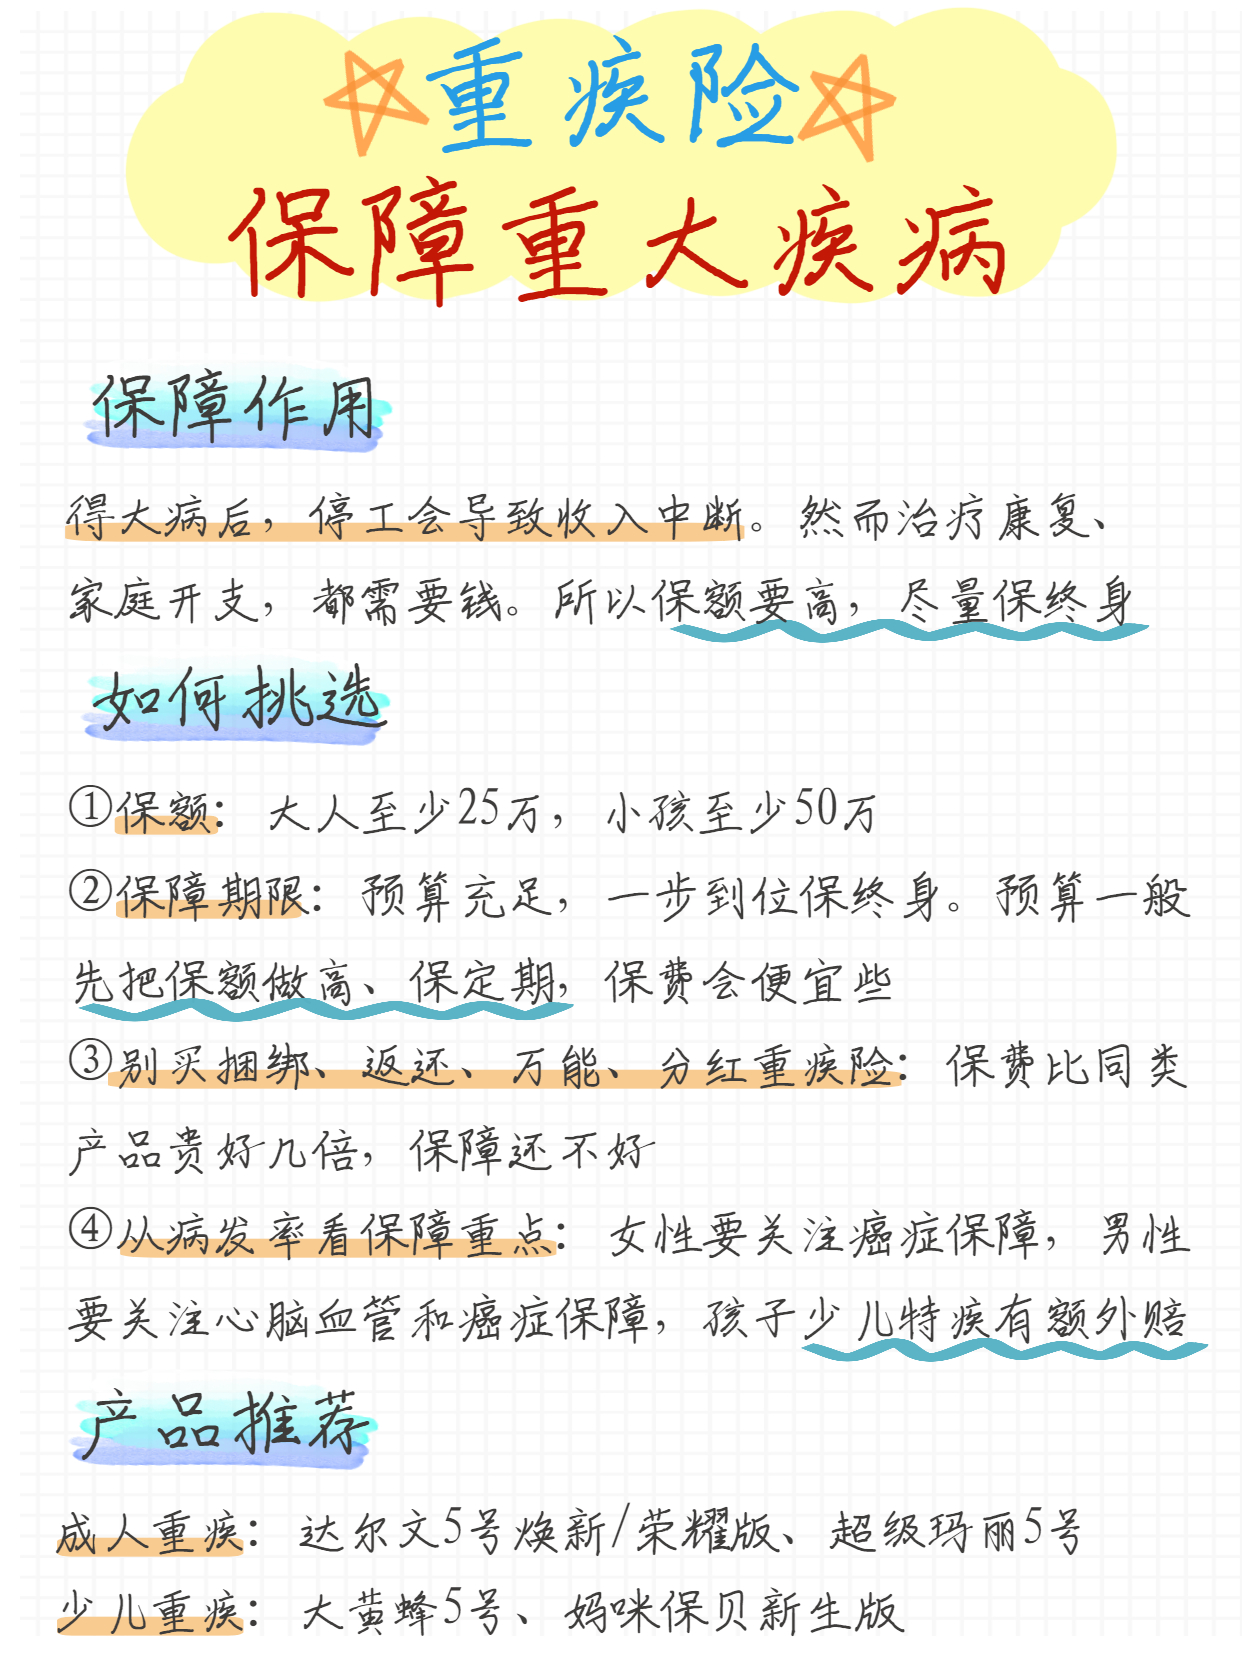 重疾险
保障重大疾病
保障作用
得大病后，停工会导致收入中断。然而治疗康复、
家庭开支，都需要钱。所以保额要高，尽量保终身
如何挑选
①保额：大人至少25万，小孩至少50万
②保障期限：预算充足，一步到位保终身。预算一般
先把保额做高、保定期，保费会便宜些
③别买捆绑、返还、万能、分红重疾险：保费比同类
产品贵好几倍，保障还不好
④从病发率看保障重点：女性要关注癌症保障，男性
要关注心脑血管和癌症保障，孩子少儿特疾有额外赔
产品推荐
成人重疾：达尔文5号焕新/荣耀版、超级玛丽5号
少儿重疾：大黄蜂5号、妈咪保贝新生版